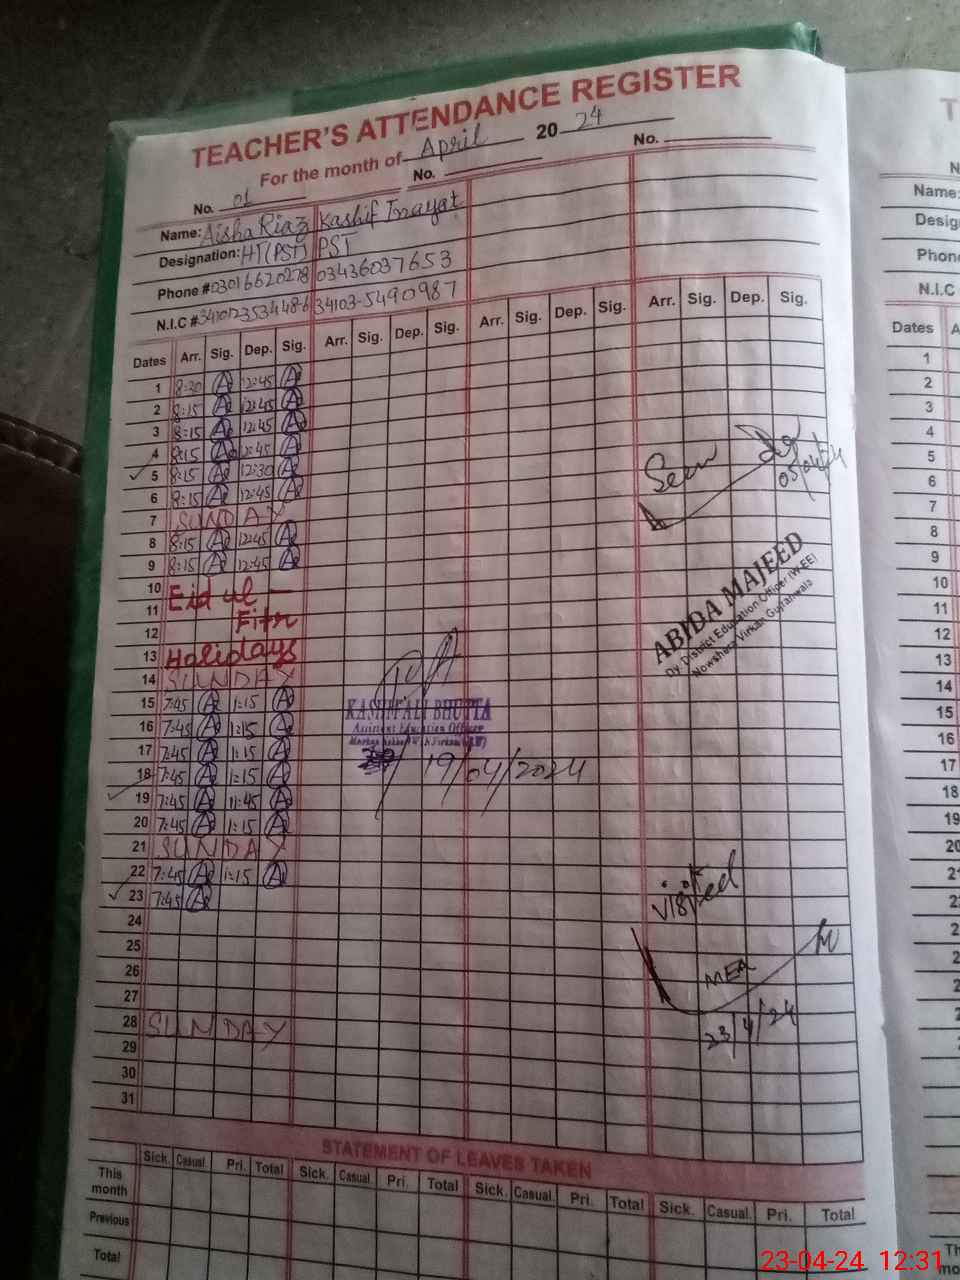 TEACHER'S ATTENDANCE REGISTER
For the month of April 2024
No. 01 No. No.
Name: Aisha Riaz Kashif Inayat
Designation: HT(PST) PST
Phone # 03016620278 03436037653
N.I.C # 34101-5490987
Dates Arr. Sig. Dep. Sig. Arr. Sig. Dep. Sig. Arr. Sig. Dep. Sig. Arr. Sig. Dep. Sig.
1 8:20 12:45
2 8:15 12:45
3 8:15 12:45
4 8:15 12:45
5 8:15 12:30
6 8:15 12:45
7 SUNDAY
8 8:15 12:45
9 8:15 12:45
10 Eid ul -
11 Fitr
12
13 Holidays
14 SUNDAY
15 7:45 1:15
16 7:45 1:15
17 7:45 1:15
18 7:45 1:15
19 7:45 11:45
20 7:45 1:15
21 SUNDAY
22 7:45 1:15
23 7:45
24
25
26
27
28 SUNDAY
29
30
31
Seen
05/04/24
ABIDA MAJEED
Dy. District Education Officer (W-EE)
Nowshera Virkan Gujranwala
KASHIF ALI BHUTTA
Assistant Education Officer
19/04/2024
visited
MEA
23/4/24
STATEMENT OF LEAVES TAKEN
Sick. Casual. Pri. Total Sick. Casual. Pri. Total Sick. Casual. Pri. Total Sick. Casual. Pri. Total
This month
Previous
Total
Name:
Phone
N.I.C
Dates
1
2
3
4
5
6
7
8
9
10
11
12
13
14
15
16
17
18
19
20
23-04-24 12:31